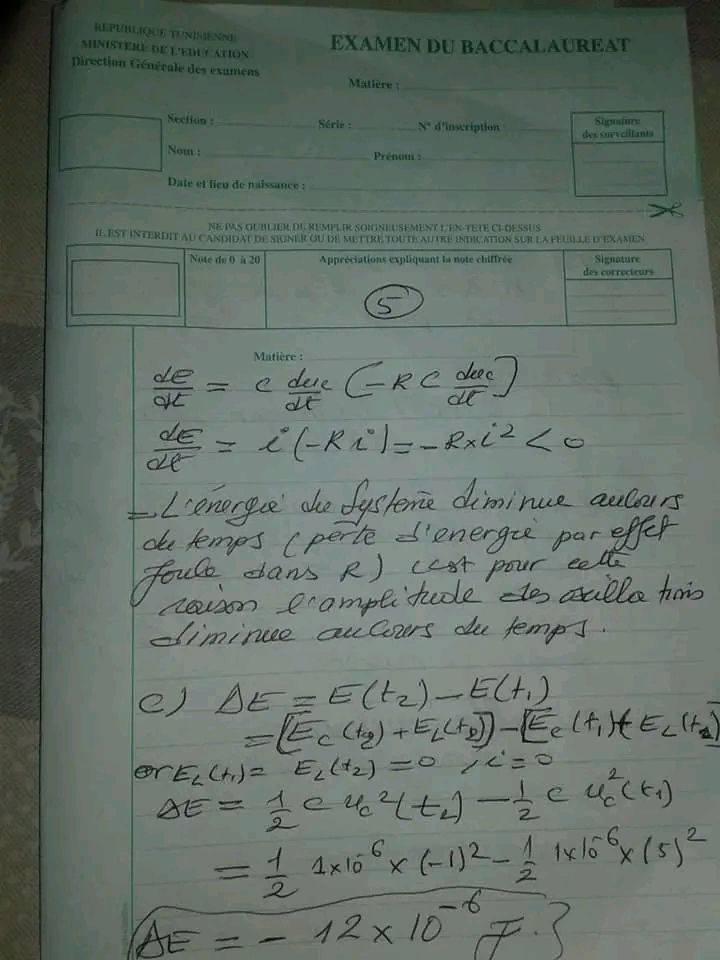 REPUBLIQUE TUNISIENNE
MINISTERE DE L'EDUCATION
Direction Générale des examens
EXAMEN DU BACCALAUREAT
Matière :
Section :
Série :
N° d'inscription
Nom :
Prénom :
Date et lieu de naissance :
Signature
des surveillants
NE PAS OUBLIER DE REMPLIR SOIGNEUSEMENT L'EN-TETE CI-DESSUS
IL EST INTERDIT AU CANDIDAT DE SIGNER OU DE METTRE TOUTE AUTRE INDICATION SUR LA FEUILLE D'EXAMEN
Note de 0 à 20
Appréciations expliquant la note chiffrée
Signature
des correcteurs
5
Matière :
dE/dt = C duc/dt (-RC duc/dt)
dE/dt = i(-Ri) = -R×i² < 0
= L'énergie du système diminue au cours
du temps (perte d'energie par effet
Joule dans R) c'est pour cette
raison l'amplitude des oscillations
diminue au cours du temps.
c) ΔE = E(t₂) - E(t₁)
= [Ec(t₂) + EL(t₂)] - [Ec(t₁) + EL(t₁)]
or EL(t₁) = EL(t₂) = 0 , i = 0
ΔE = 1/2 C uc²(t₂) - 1/2 C uc²(t₁)
= 1/2 1×10⁻⁶ × (-1)² - 1/2 1×10⁻⁶ × (5)²
ΔE = - 12 × 10⁻⁶ J.